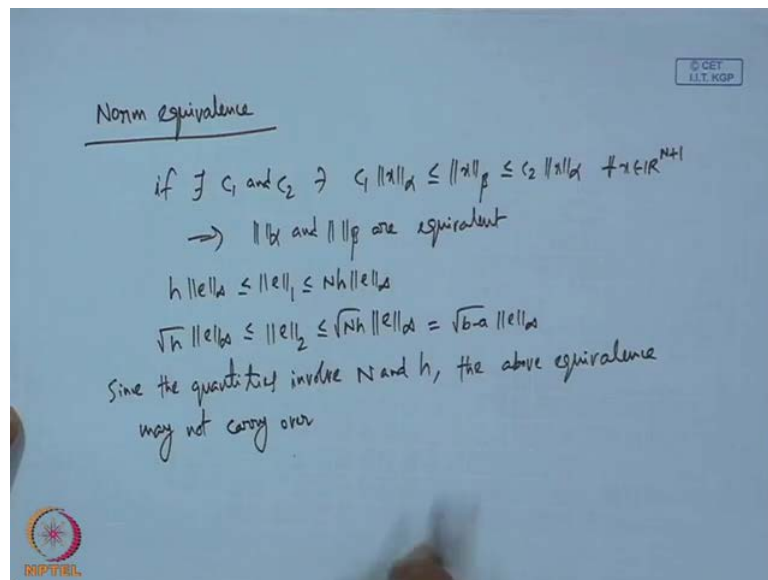 © CET
I.I.T. KGP
Norm equivalence
if ∃ C₁ and C₂ ∋ C₁ ||x||_α ≤ ||x||_β ≤ C₂ ||x||_α ∀ x ∈ ℝ^{N+1}
⇒ || ||_α and || ||_β are equivalent
h ||e||_∞ ≤ ||e||₁ ≤ Nh ||e||_∞
√h ||e||_∞ ≤ ||e||₂ ≤ √Nh ||e||_∞ = √b-a ||e||_∞
Since the quantities involve N and h, the above equivalence
may not carry over
NPTEL